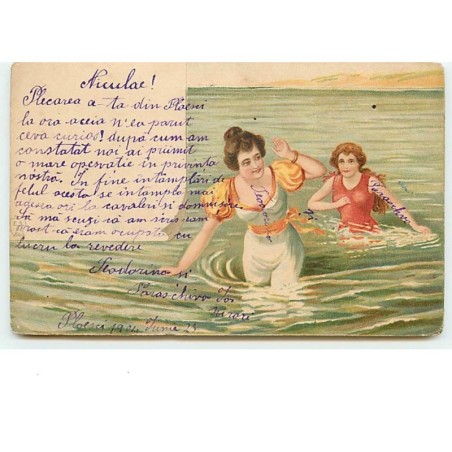 Niculae!
Plecarea a-ta din Ploesci
la ora aceia n'ea parut
ceva curios! după cum am
constatat noi ai priimit
o mare operatie in privinta
nostră. In fine intâmplări de
felul acesta se intâmplă mai
adesea ori la cavaleri si domnisore.
ma scuzi că am scris
prost că eram ocupată cu
lucru la revedere
Teodorina si
Paraschiva
Ploesci 190 Iunie 23
Teodorina
Paraschiva